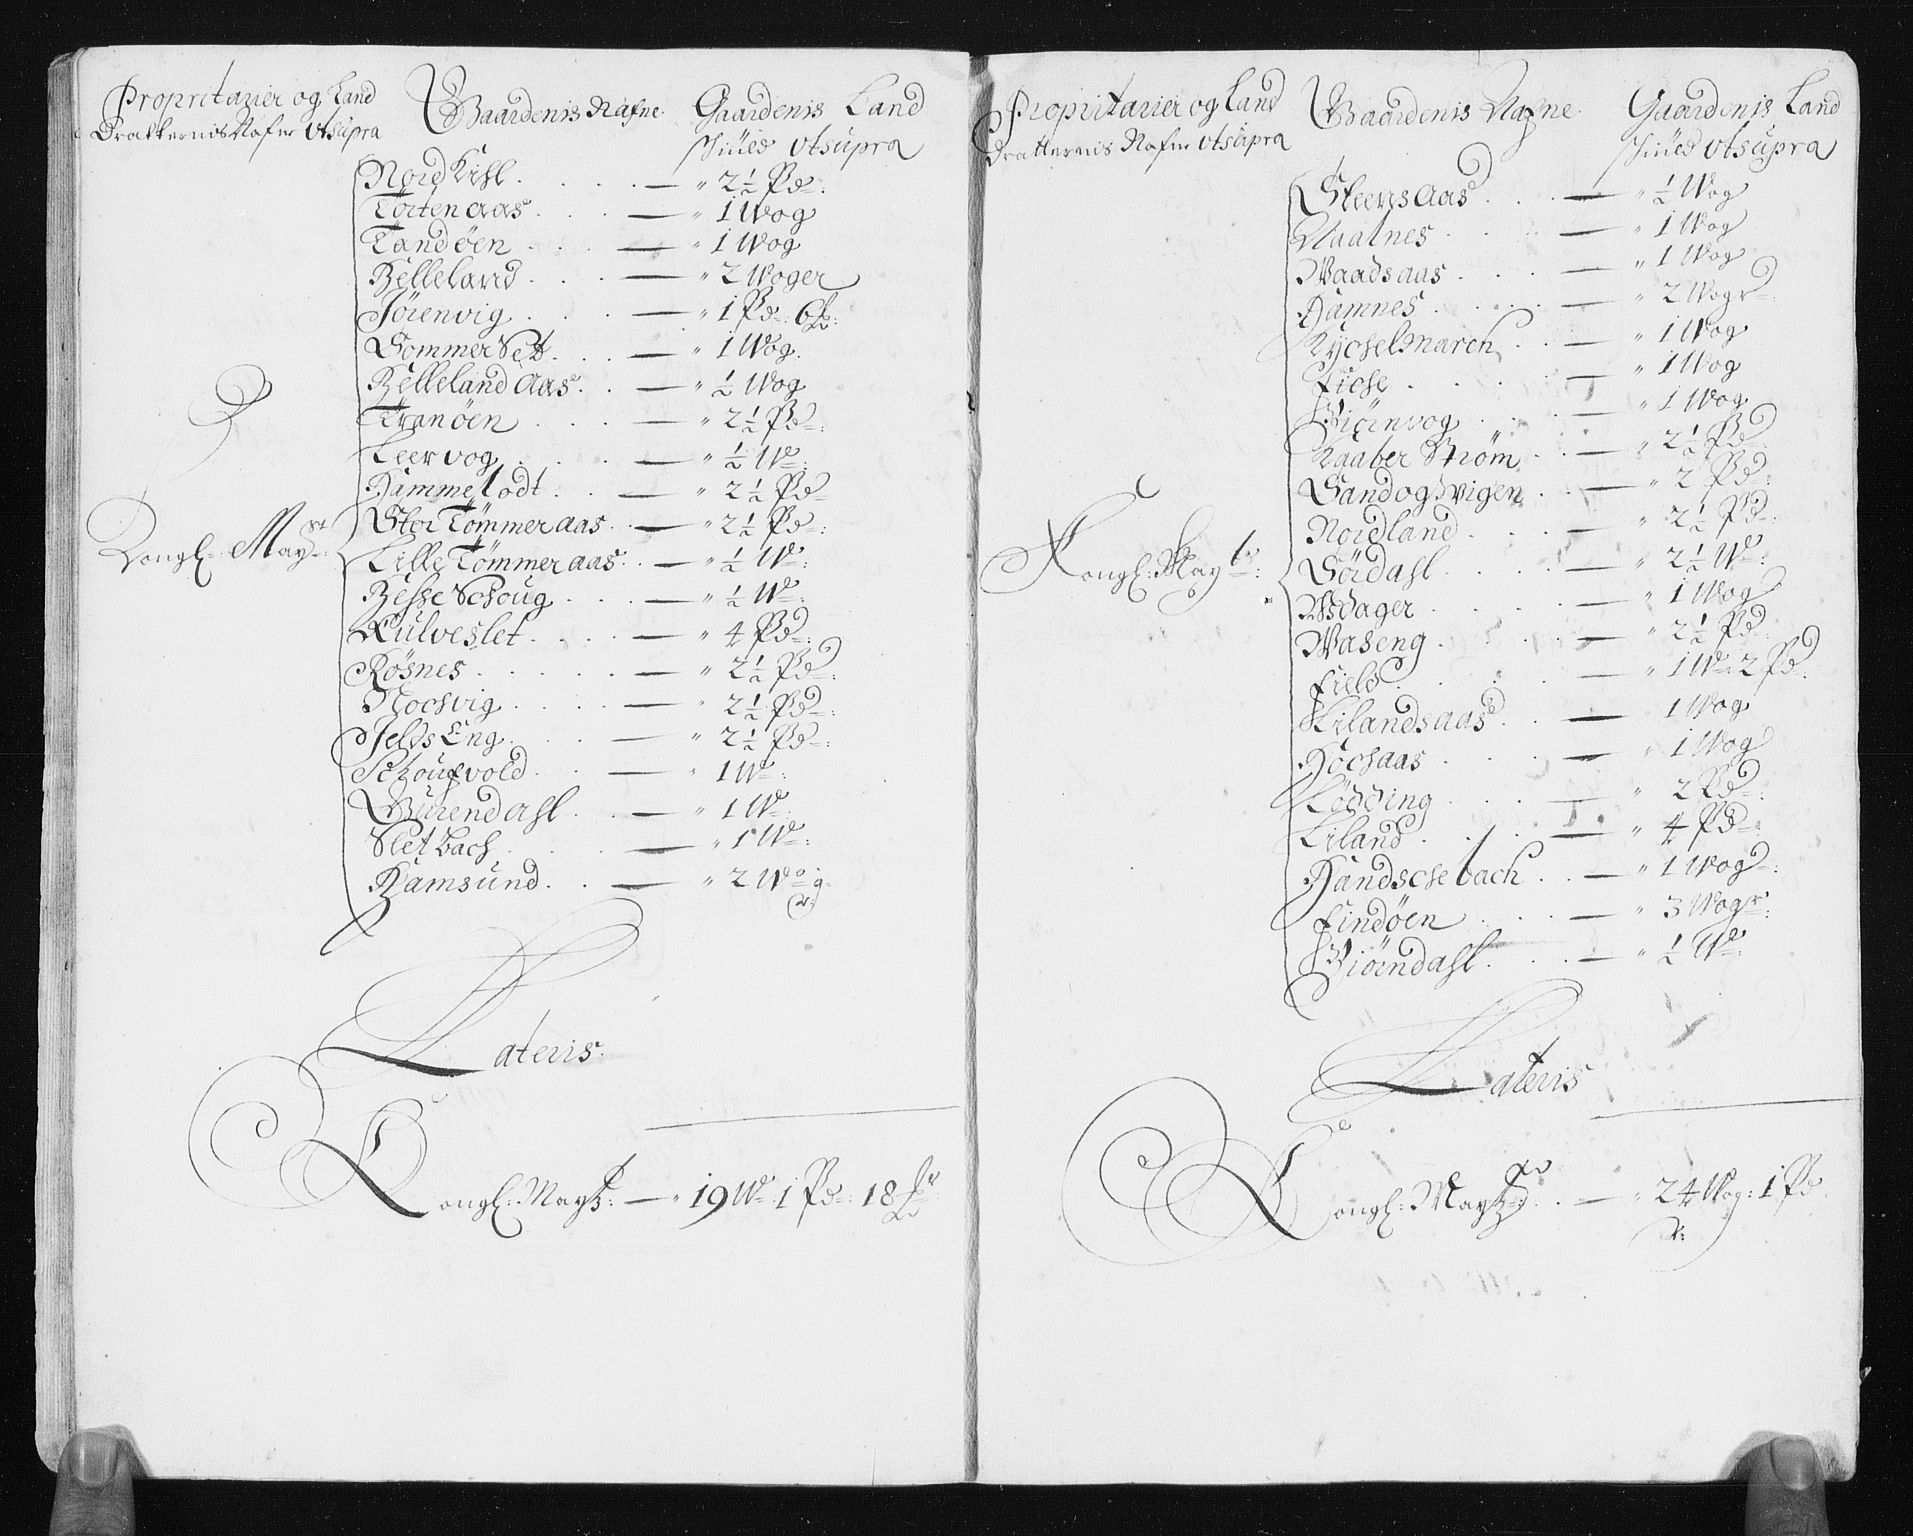 Propritarier og Land
Dratternis Nafne Utsupra
Gaardenis Nafne
Gaardenis Land
schiüld Utsupra
Kongl: Mayt:
Nord Kihl . . . . — " 2½ Pd:
Torten aas . . . — " 1 Wog
Tandöen . . . — " 1 Wog
Helleland . . . — " 2 Woger
Jörenvig . . . — " 1 Pd: 6 lb:
Sommer Set . . . — " 1 Wog.
Helleland Aas . . — " ½ Wog
Tranöen . . . — " 2½ Pd:
Leervog . . . — " ½ W:
Hammelodt . . . — " 2½ Pd
Stor Tömmeraas . . — " 2½ Pd:
Lille Tömmeraas . . — " ½ W:
Hesse Schoug . . . — " ½ W:
Kulveslet . . . — " 4 Pd:
Rösnes . . . . — " 2½ Pd:
Nochvig . . . . — " 2½ Pd:
Jelds Eng . . . — " 2½ Pd:
Schoufvold . . . — " 1 W:
Burendahl . . . — " 1 W:
Slet bach . . . — " 1 W:
Hamsund . . . — " 2 Wog
r:
Lateris.
Kongl: Mayt: — " 19 W 1 Pd: 18 lb
Propritarier og Land
Dratternis Nafne Utsupra
Gaardenis Nafne
Gaardenis Land
schiüld Utsupra
Kongl: Mayts:
Steens Aas . . . — " ½ Wog
Naatnes . . . — " 1 Wog
Waadsaas . . . — " 1 Wog
Hamnes . . . — " 2 Wogr
Kychelmarch . . — " 1 Wog
Fiose . . . — " 1 Wog
Biörnvog . . . — " 1 Wog
Kaaber Ström . . — " 2½ Pd:
Sand og Vigen . . — " 2 Pd:
Nordland . . . — " 2½ Pd:
Sördahl . . . — " 2½ W:
Wdager . . . — " 1 Wog
Waseng . . . — " 2½ Pd
Field . . . — " 1 W 2 Pd.
Lilandsaas . . — " 1 Wog
Hochaas . . . — " 1 Wog
Lödding . . . — " 2 Pd:
Liland . . . — " 4 Pd:
Handschebach . . — " 1 Wog:
Findöen . . . — " 3 Wogr:
Biörndahl . . . — " ½ W:
Lateris
Kongl: Mayt: . — " 24 Wog: 1 Pd
r: